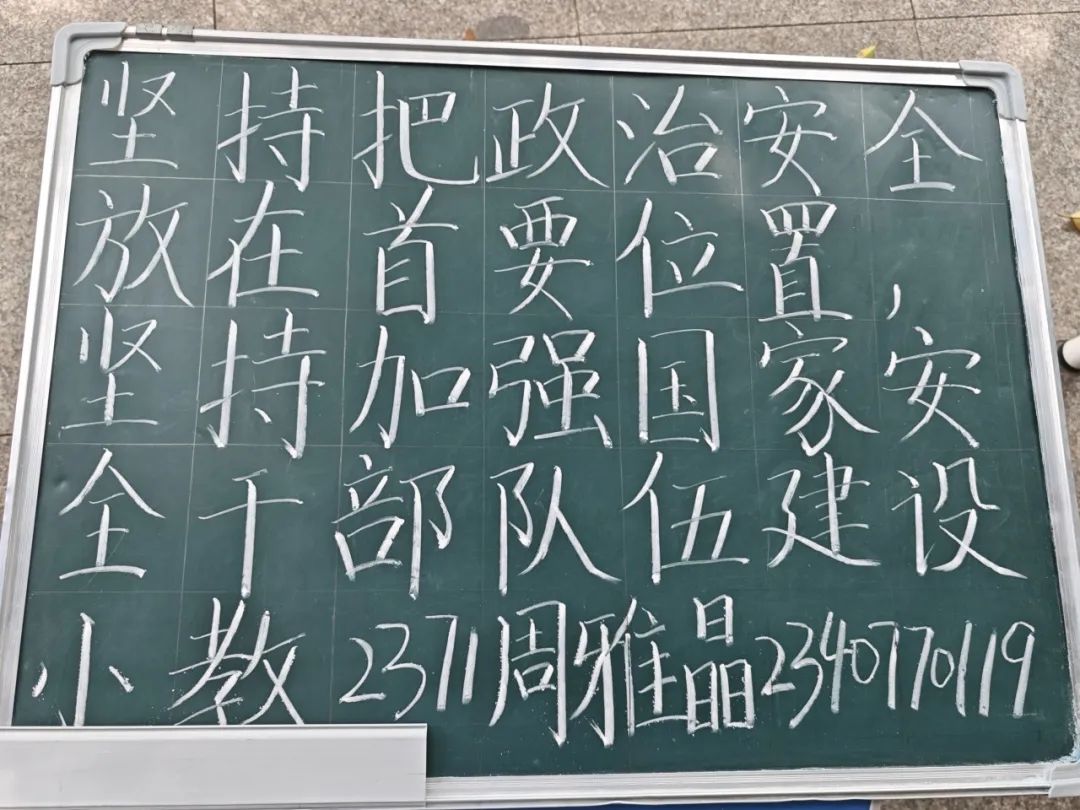 坚持把政治安全
放在首要位置,
坚持加强国家安
全干部队伍建设
小教2371周雅晶2340770119